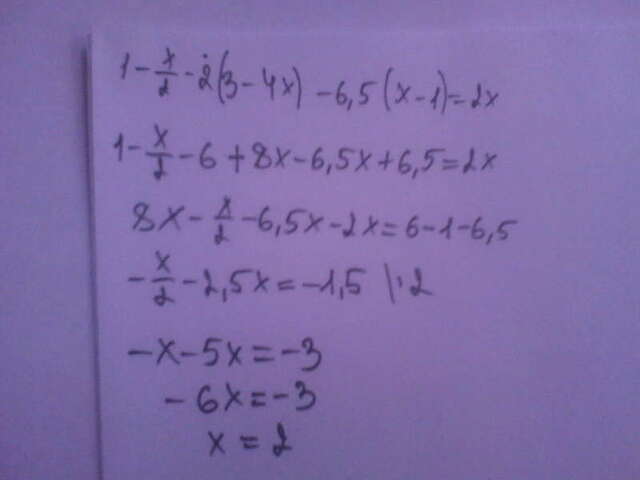 1 - x/2 - 2(3 - 4x) - 6,5(x - 1) = 2x
1 - x/2 - 6 + 8x - 6,5x + 6,5 = 2x
8x - x/2 - 6,5x - 2x = 6 - 1 - 6,5
- x/2 - 2,5x = -1,5 |·2
- x - 5x = -3
- 6x = -3
x = 2